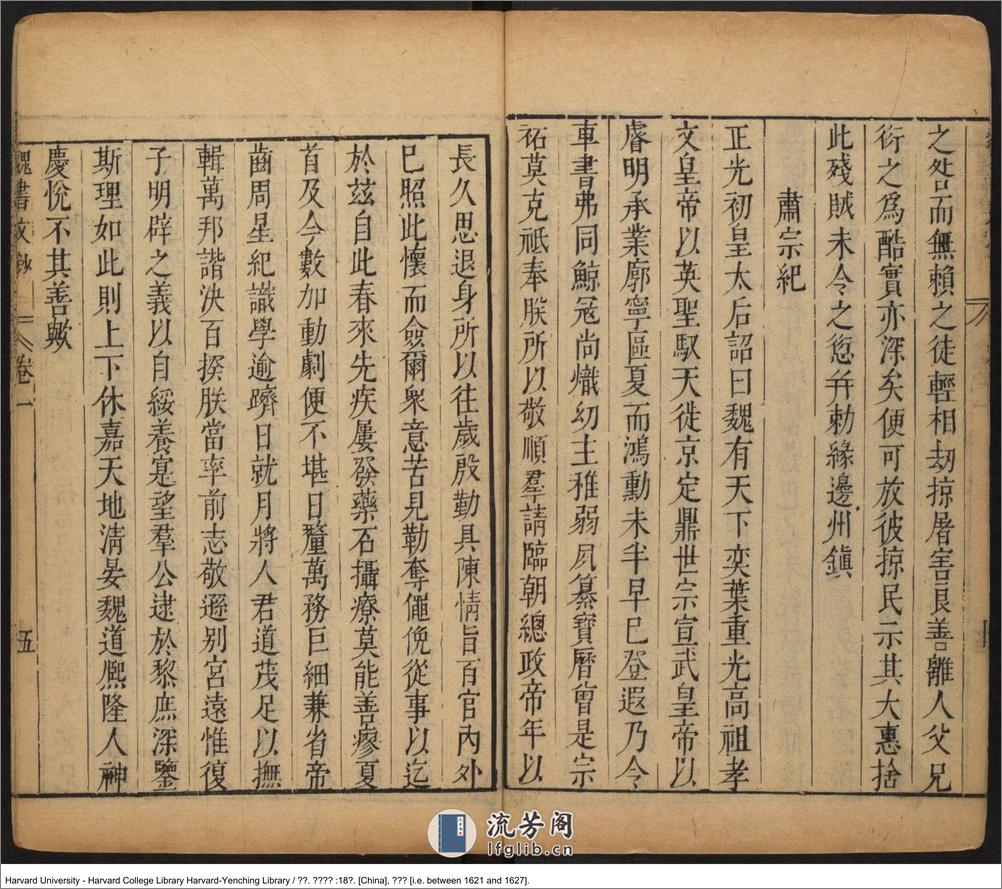 之咎而無賴之徒輕相劫掠屠害良善離人父兄
衍之爲酷實亦深矣便可放彼掠民示其大惠捨
此殘賊未令之愆幷勅緣邊州鎮
肅宗紀
正光初皇太后詔曰魏有天下奕葉重光高祖孝
文皇帝以英聖馭天徙京定鼎世宗宣武皇帝以
睿明承業廓寧區夏而鴻勳未半早巳登遐乃令
車書弗同鯨寇尚熾幼主稚弱夙纂寶曆曾是宗
祏莫克祗奉朕所以敬順羣請臨朝總政帝年以
長久思退身所以往歲殷勤具陳情旨百官內外
巳照此懷而僉爾衆意苦見勒奪僶俛從事以迄
於兹自此春來先疾屢發藥石攝療莫能善瘳夏
首及今數加動劇便不堪日釐萬務巨細兼省帝
齒周星紀識學逾躋日就月將人君道茂足以撫
輯萬邦諧決百揆朕當率前志敬遜别宮遠惟復
子明辟之義以自綏養寔望羣公逮於黎庶深鑒
斯理如此則上下休嘉天地清晏魏道熈隆人神
慶悅不其善歟
魏書文鈔 卷一 五
流芳阁
lfglib.cn
Harvard University - Harvard College Library Harvard-Yenching Library / ??. ???? :18?. [China], ??? [i.e. between 1621 and 1627].